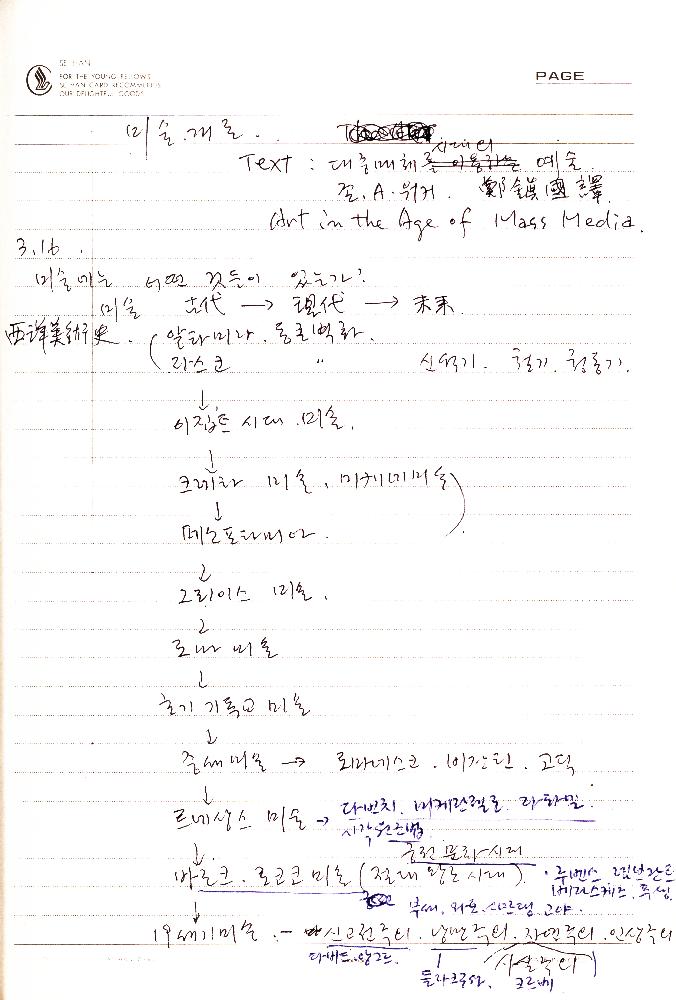 SE HAN
FOR THE YOUNG FELLOWS
SE HAN CARD RECOMMENDS
OUR DELIGHTFUL GOODS
PAGE
미술 개론.
Text : 대중매체 시대의 예술
죤. A. 워커. 鄭鎭國 譯.
Art in the Age of Mass Media.
3.16.
미술에는 어떤 것들이 있는가?
미술 古代 → 現代 → 未来
西洋美術史. (알타미라. 동굴벽화.
라스코 〃 신석기. 철기. 청동기.
↓
이집트 시대 미술.
↓
크레타 미술, 미케네미술)
↓
메소포타미아.
↓
그리이스 미술.
↓
로마 미술
↓
초기 기독교 미술
↓
중세미술 → 로마네스크. 비잔틴. 고딕
↓
르네상스 미술 → 다빈치. 미케란젤로. 라파엘.
시각원근법
↓
궁전 문화시대
바로크. 로코코 미술 (절대 왕조 시대). · 루벤스 렘브란트
베라스케즈. 푸생.
부쉐. 와토. 샤르댕. 고야.
↓
19세기미술. - 신고전주의. 낭만주의. 자연주의. 인상주의
다비드. 앙그르. (사실주의)
들라크루와. 쿠르베